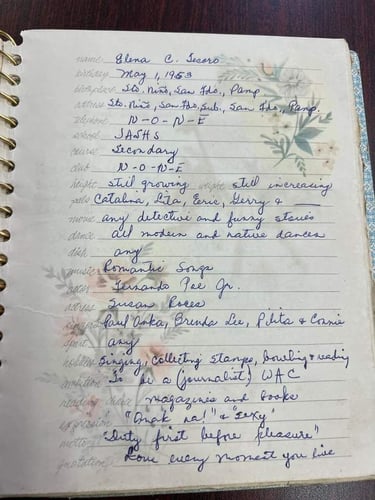 name Elena C. Tesoro
birthday May 1, 1953
birthplace Sto. Niño, San Fdo., Pamp
address Sto. Niño, San Fdo. Sub., San Fdo., Pamp.
N-O-N-E
school JASHS
course Secondary
club N-O-N-E
height still growing weight still increasing
pals Catalina, Lita, Eric, Gerry & ____
movie any detective and funny stories
dance all modern and native dances
dish any
music Romantic Songs
actor Fernando Poe Jr.
actress Susan Roces
Paul Anka, Brenda Lee, Pilita & Connie
any
hobbies Singing, Collecting Stamps, bowling & reading
ambition To be a (journalist) WAC
reading magazines and books
expression "Anak na!" & "Sexy"
motto "Duty first before pleasure"
quotation Love every moment you live